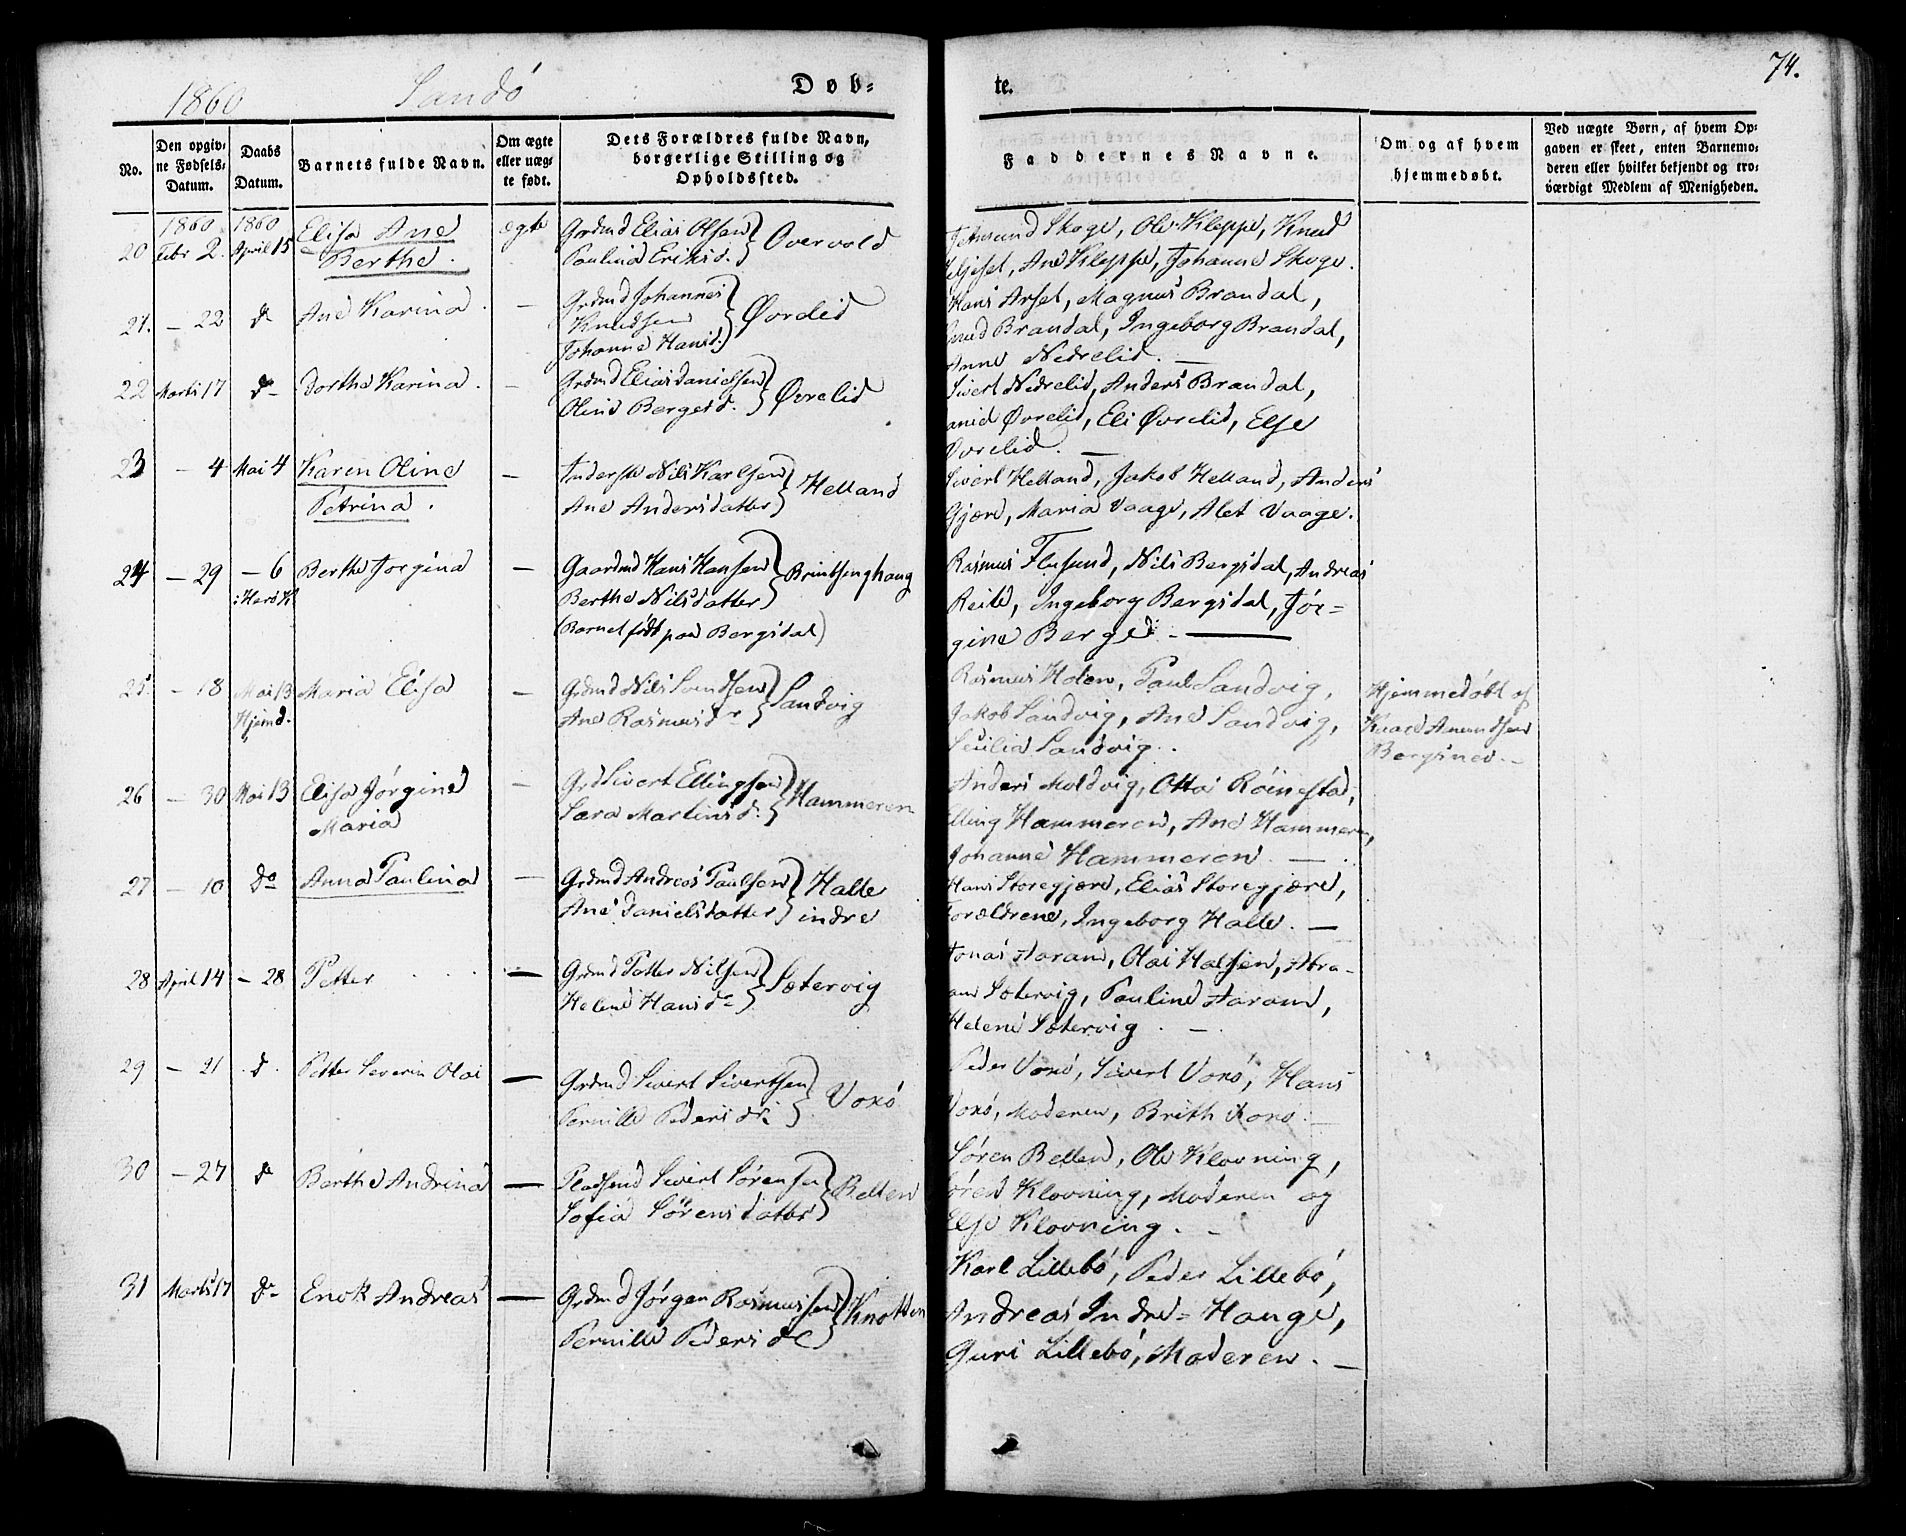 1860
Sandö
Døb-
te.
74.
No.
Den opgiv-
ne Fødsels-
Datum.
Daabs
Datum.
Barnets fulde Navn.
Om ægte
eller uæg-
te født.
Dets Forældres fulde Navn,
borgerlige Stilling og
Opholdssted.
Faddernes Navne.
Om og af hvem
hjemmedøbt.
Ved uægte Børn, af hvem Op-
gaven er skeet, enten Barnemo-
deren eller hvilket bekjendt og tro-
værdigt Medlem af Menigheden.
1860 1860
20 Febr 2. April 15 Elisa Ane
Berthe. ægte
Grdmd Elias Olsen
Paulina Eriksd. Overvold
Skoge, Ole Kleppe, Knud
Ane Kleppe, Johanne Skoge.
21. - 22 do Ane Karina. -
Grdmd Johannes
Knudsen
Johanne Hansd. Øvrelid
Hans Arset, Magnus Brandal,
Knud Brandal, Ingeborg Brandal,
Anne Nedrelid. -
22 Marts 17 do Dorthe Karina. -
Grdmd Elias Danielsen
Oline Bergesd. Øvrelid
Sivert Nedrelid, Anders Brandal,
Øvrelid, Eli Øvrelid, Else
Øvrelid. -
23 - 4 Mai 4 Karen Oline
Petrina. -
Inderste Nils Karlsen
Ane Andersdatter Helland
Sivert Helland, Jakob Helland, Anders
Gjære, Maria Vaage, Alet Vaage.
24 - 29 - 6 Berthe Jorgina -
i Herø K.
Gaardmd Hans Hansen
Berthe Nilsdatter
(Barnet født paa Bergsdal)
Rasmus Flusund, Nils Bergsdal, Andreas
Reite, Ingeborg Bergsdal, Jør-
gine Berge. -
25. - 18 Mai 13
Hjemd. Maria Elisa -
Grdmd Nils Sundsen
Ane Rasmusdr Sandvig
Rasmus Holen, Paul Sandvig,
Jakob Sandvig, Ane Sandvig,
Cecilia Sandvig.
Hjemmedøbt af
Knud Amundsen
26 - 30 Mai 13 Elisa Jørgine
Maria -
Grd Sivert Ellingsen
Sara Martinsd. Hammeren
Anders Moldvig, Otto Röinestad,
Elling Hammeren, Ane Hammeren,
Johanne Hammeren. -
27 - 10 Do Anna Paulina -
Grdmd Andreas Paulsen
Ane Danielsdatter Halle
indre
Hans Storegjære, Elias Storegjære,
Forældrene, Ingeborg Halle. -
28 April 14 - 28 Petter -
Grdmd Petter Nilsen
Helene Hansdr Sætervig
Jonas Aaram, Olai Halsen, Abra-
am Sætervig, Pauline Aaram,
Helene Sætervig. -
29 - 21 d. Petter Severin Olai -
Grdmd Sivert Sivertsen
Pernille Pedersdr. Voxö
Peder Voxö, Sivert Voxö, Hans
Voxö, Moderen, Brith Voxö. -
30 - 27 do Berthe Andrina -
Pladsmd Sivert Sørensen
Sofia Sörensdatter Belten
Søren Belten, Ole Klovning,
Søren Klovning, Moderen og
Else Klovning. -
31 Marts 17 do Enok Andreas -
Grdmd Jørgen Rasmussen
Pernille Pedersdr Knotten
Karl Lillebö, Peder Lillebö,
Andreas Indre-Hauge,
Guri Lillebö, Moderen. -